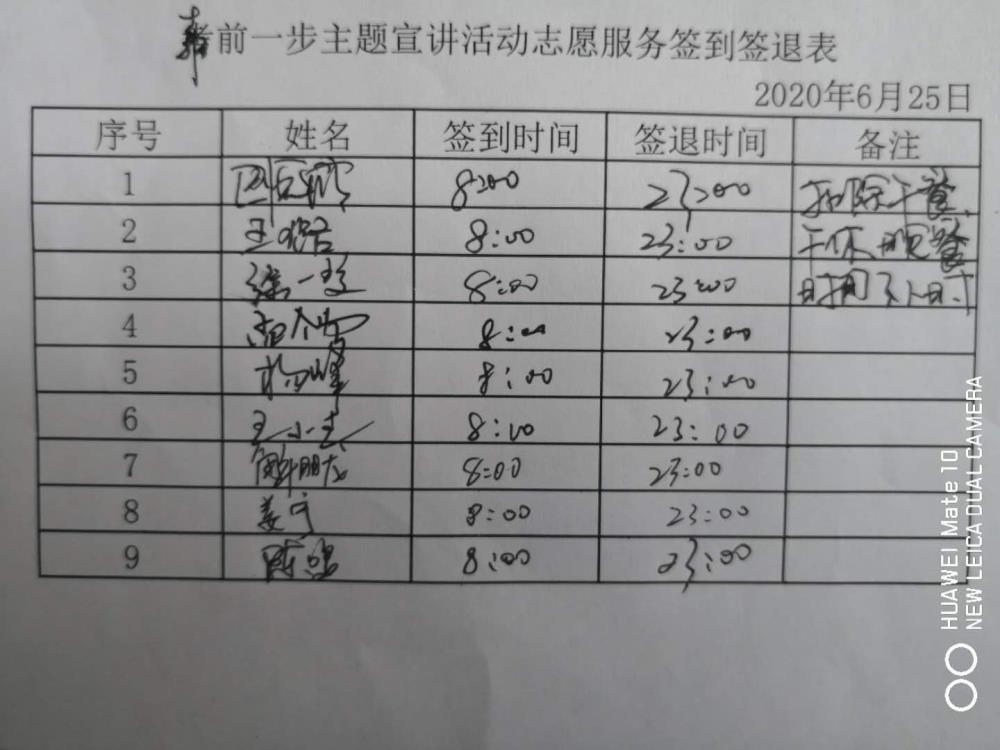 前一步主题宣讲活动志愿服务签到签退表
2020年6月25日
序号 姓名 签到时间 签退时间 备注
1 8:00 23:00 扣除午餐
2 8:00 23:00 午休 晚餐
3 徐一 8:00 23:00 时间 小时
4 8:00 23:00
5 杨峰 8:00 23:00
6 王小 8:00 23:00
7 8:00 23:00
8 姜宁 8:00 23:00
9 陈 8:00 23:00
HUAWEI Mate 10
NEW LEICA DUAL CAMERA